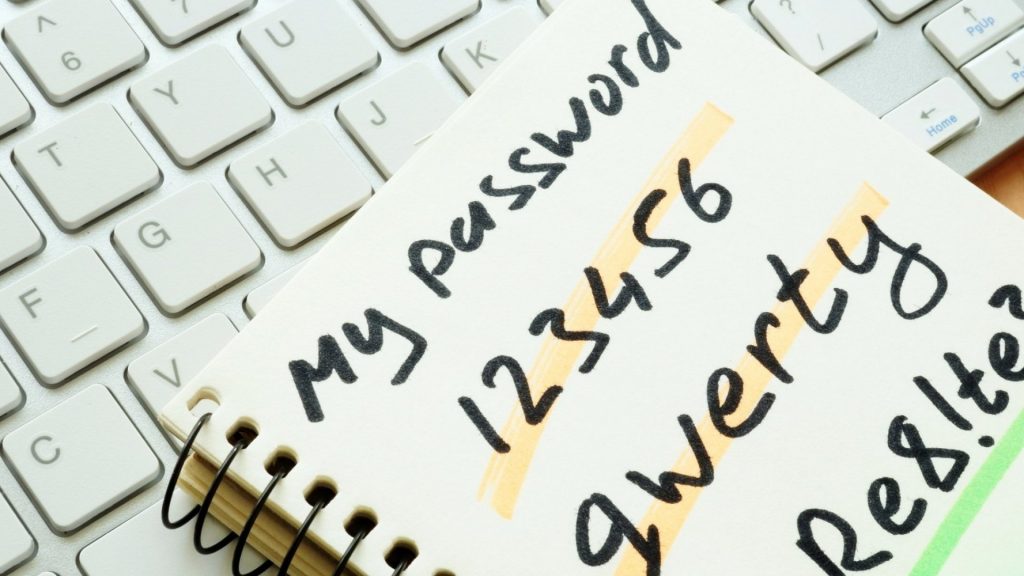 My password
123456
qwerty
Re8!te
^
6
7
U
Y
K
J
T
H
G
F
V
C
?
/
PgUp
Home